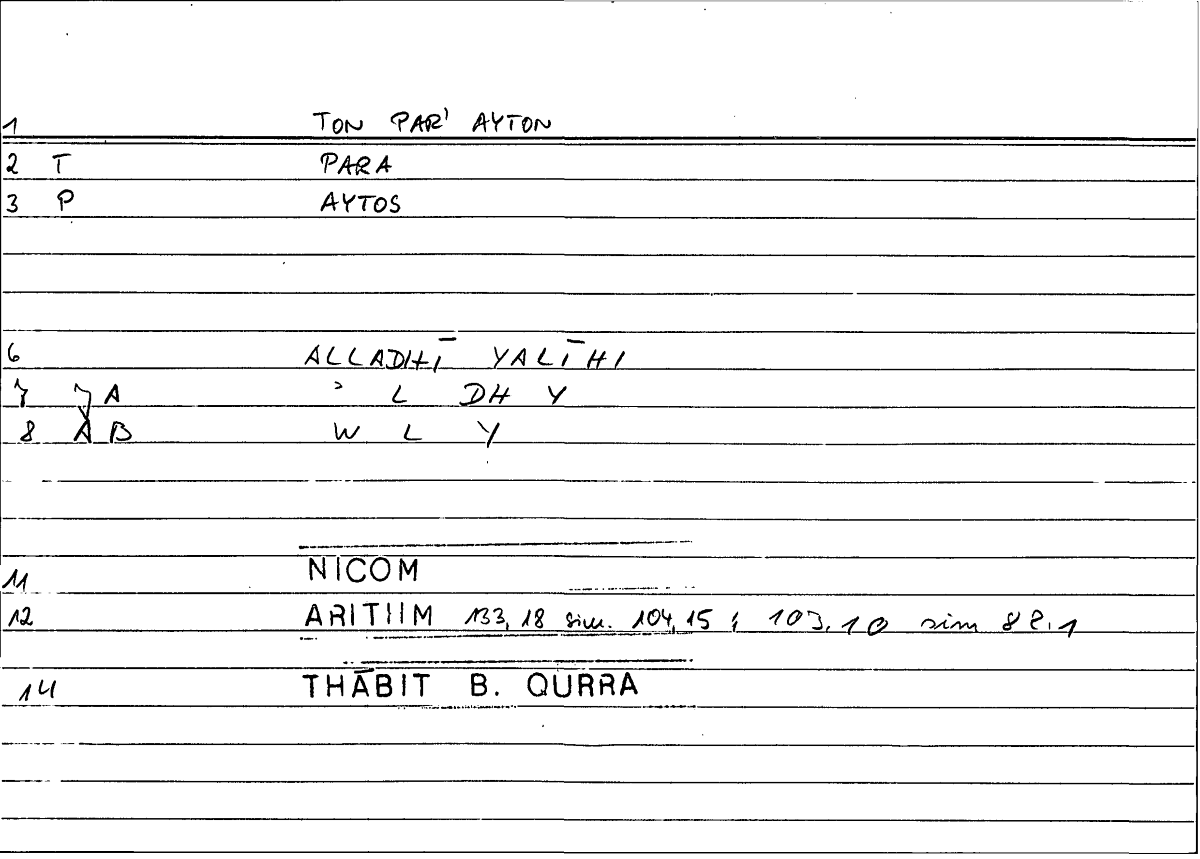 1 TON PAR' AYTON
2 T PARA
3 P AYTOS
6 ALLADHĪ YALĪHI
7 A ʾ L DH Y
8 A B W L Y
11 NICOM
12 ARITIIM 133, 18 sim. 104, 15 ; 103.10 sim 88.1
14 THĀBIT B. QURRA